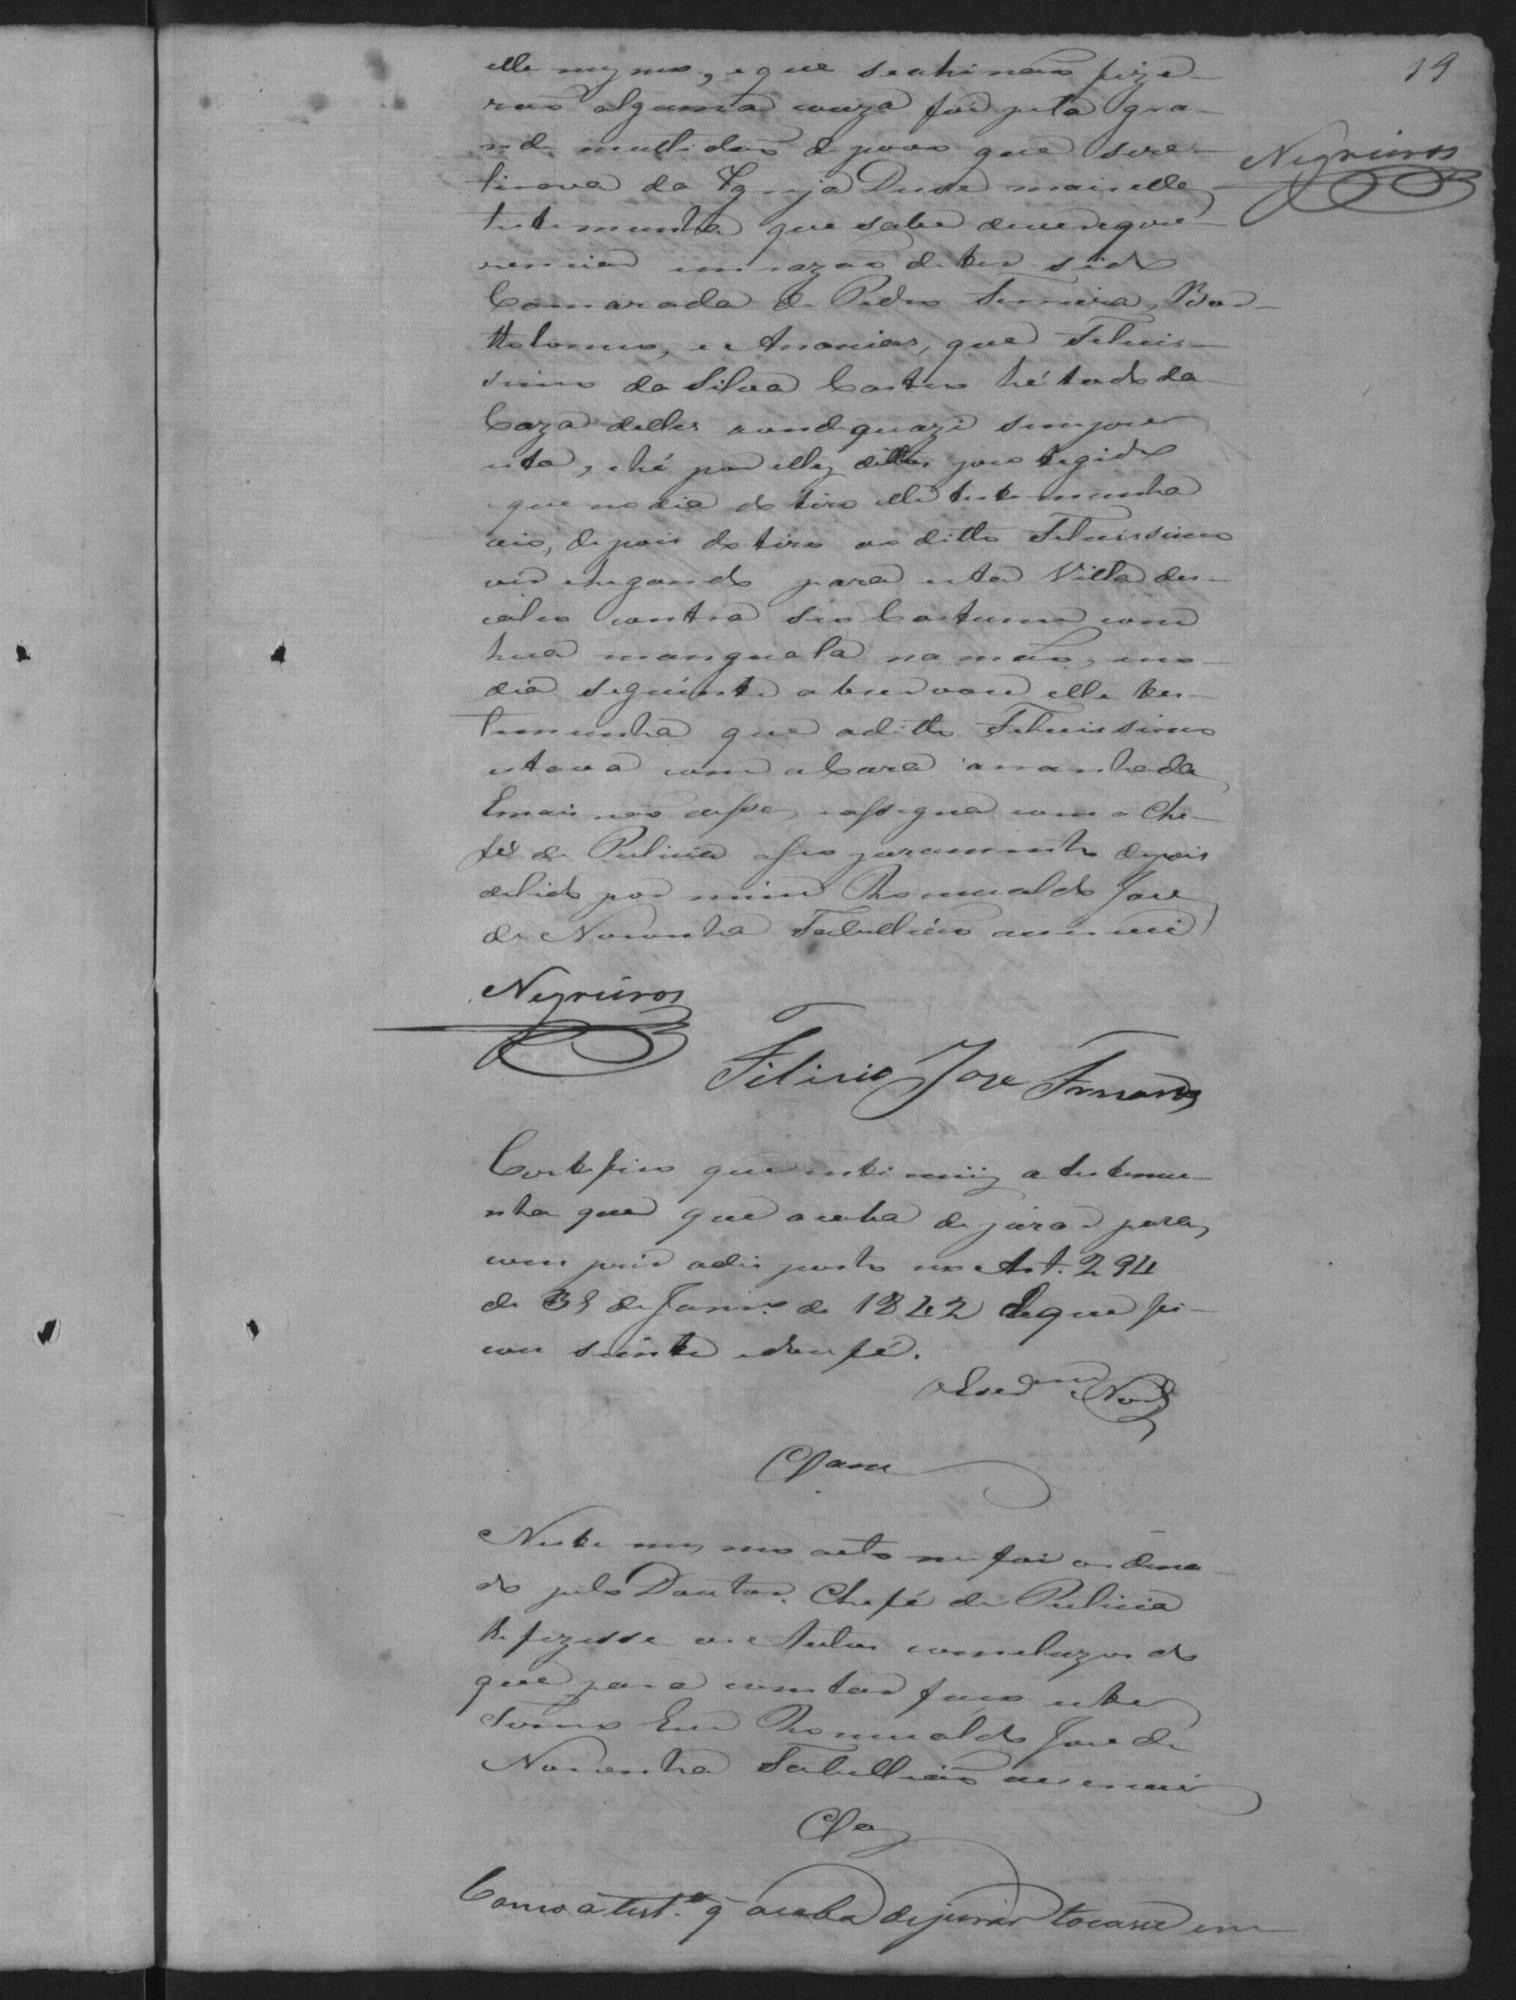 19
Negreiros
elle mesmo, e que se ahi não fize-
rão alguma couza foi pela gra-
nde multidão de povo que se re-
tirava da Igreja Disse mais elle
testemunha que sabe de
em razão de ter sido
Camarada de Pedro Ferreira, Bar-
tholomeo, e Ananias, que Feluis-
simo da Silva Castro hé todo da
Caza delles aonde quazi sempre
esta, e hé por elles dittos protegido
que no dia do tiro elle testemunha
vio, depois do tiro ao ditto Feluissimo
vir chegando para esta Villa des-
calso contra seo Costume com
hua manguala na mão, e no
dia seguinte observou elle tes-
temunha que o ditto Feluissimo
estava com a Cara arranhada
E mais não disse, e assigna com o Che-
fe de Policia o seo juramento depois
de lido por mim Romualdo Jose
de Noronha Tabellião que escrevi
Negreiros
Felicio Jose Fernandes
Certefico que intimiij a testemu-
nha que que acaba de jurar para
comprir a disposto no Art. 294
de 31 de Janro. de 1842 de que fi-
cou sciente e dou fé.
Clam
Neste mesmo acto me foi ordena-
do pelo Doutor Chefe de Policia
lhe fizesse os Autos concluzos do
que para constar faço este
Termo Eu Romualdo Jose de
Noronha Tabellião que escrevi
Clos
Como a test.ª q acaba de jurar tocasse em